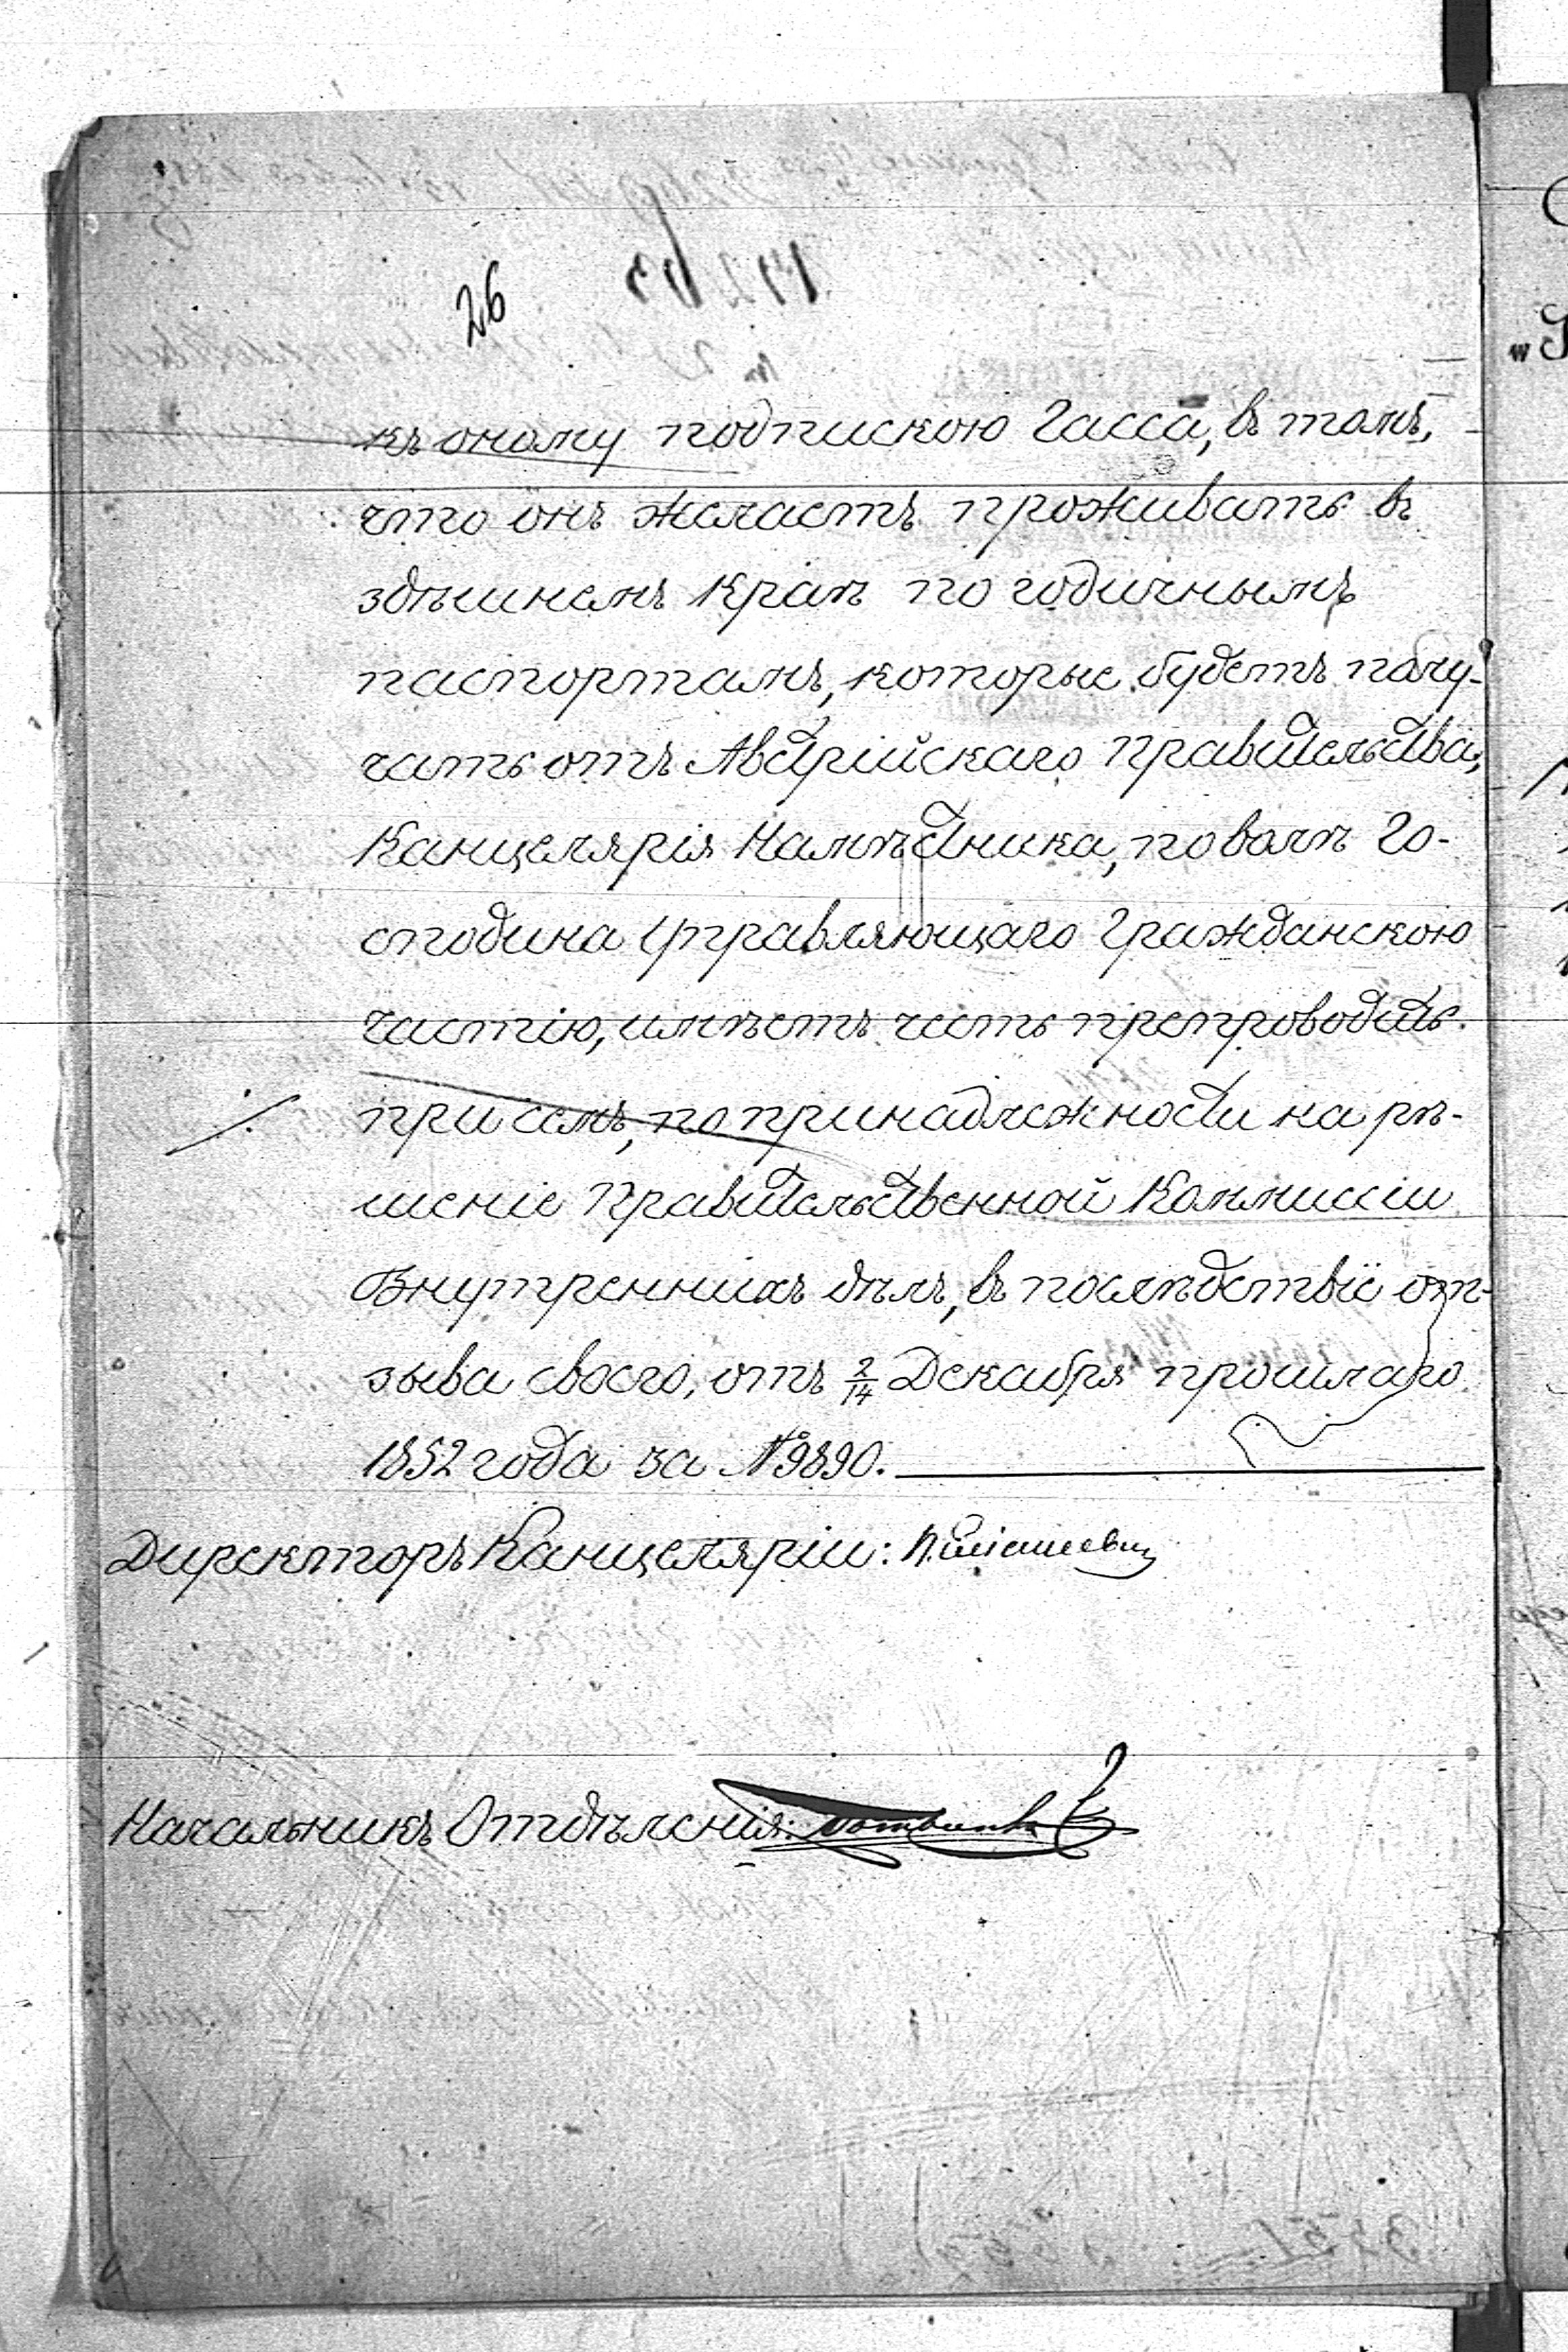 26
къ оному подпискою Гасса, въ томъ,
что онъ желаетъ проживать въ
здѣшнемъ краѣ по годичнымъ
паспортамъ, которые будетъ полу-
чать отъ Австрійскаго Правительства,
Канцелярія Намѣстника, по волѣ Го-
сподина Управляющаго Гражданскою
Частію, имѣетъ честь препроводить
при семъ, по принадлежности на рѣ-
шеніе Правительственной Коммиссіи
Внутреннихъ дѣлъ, въ послѣдствіе от-
зыва своего, отъ 2/14 Декабря прошлаго
1852 года за №9890.
Директоръ Канцеляріи:
Начальникъ Отдѣленія: